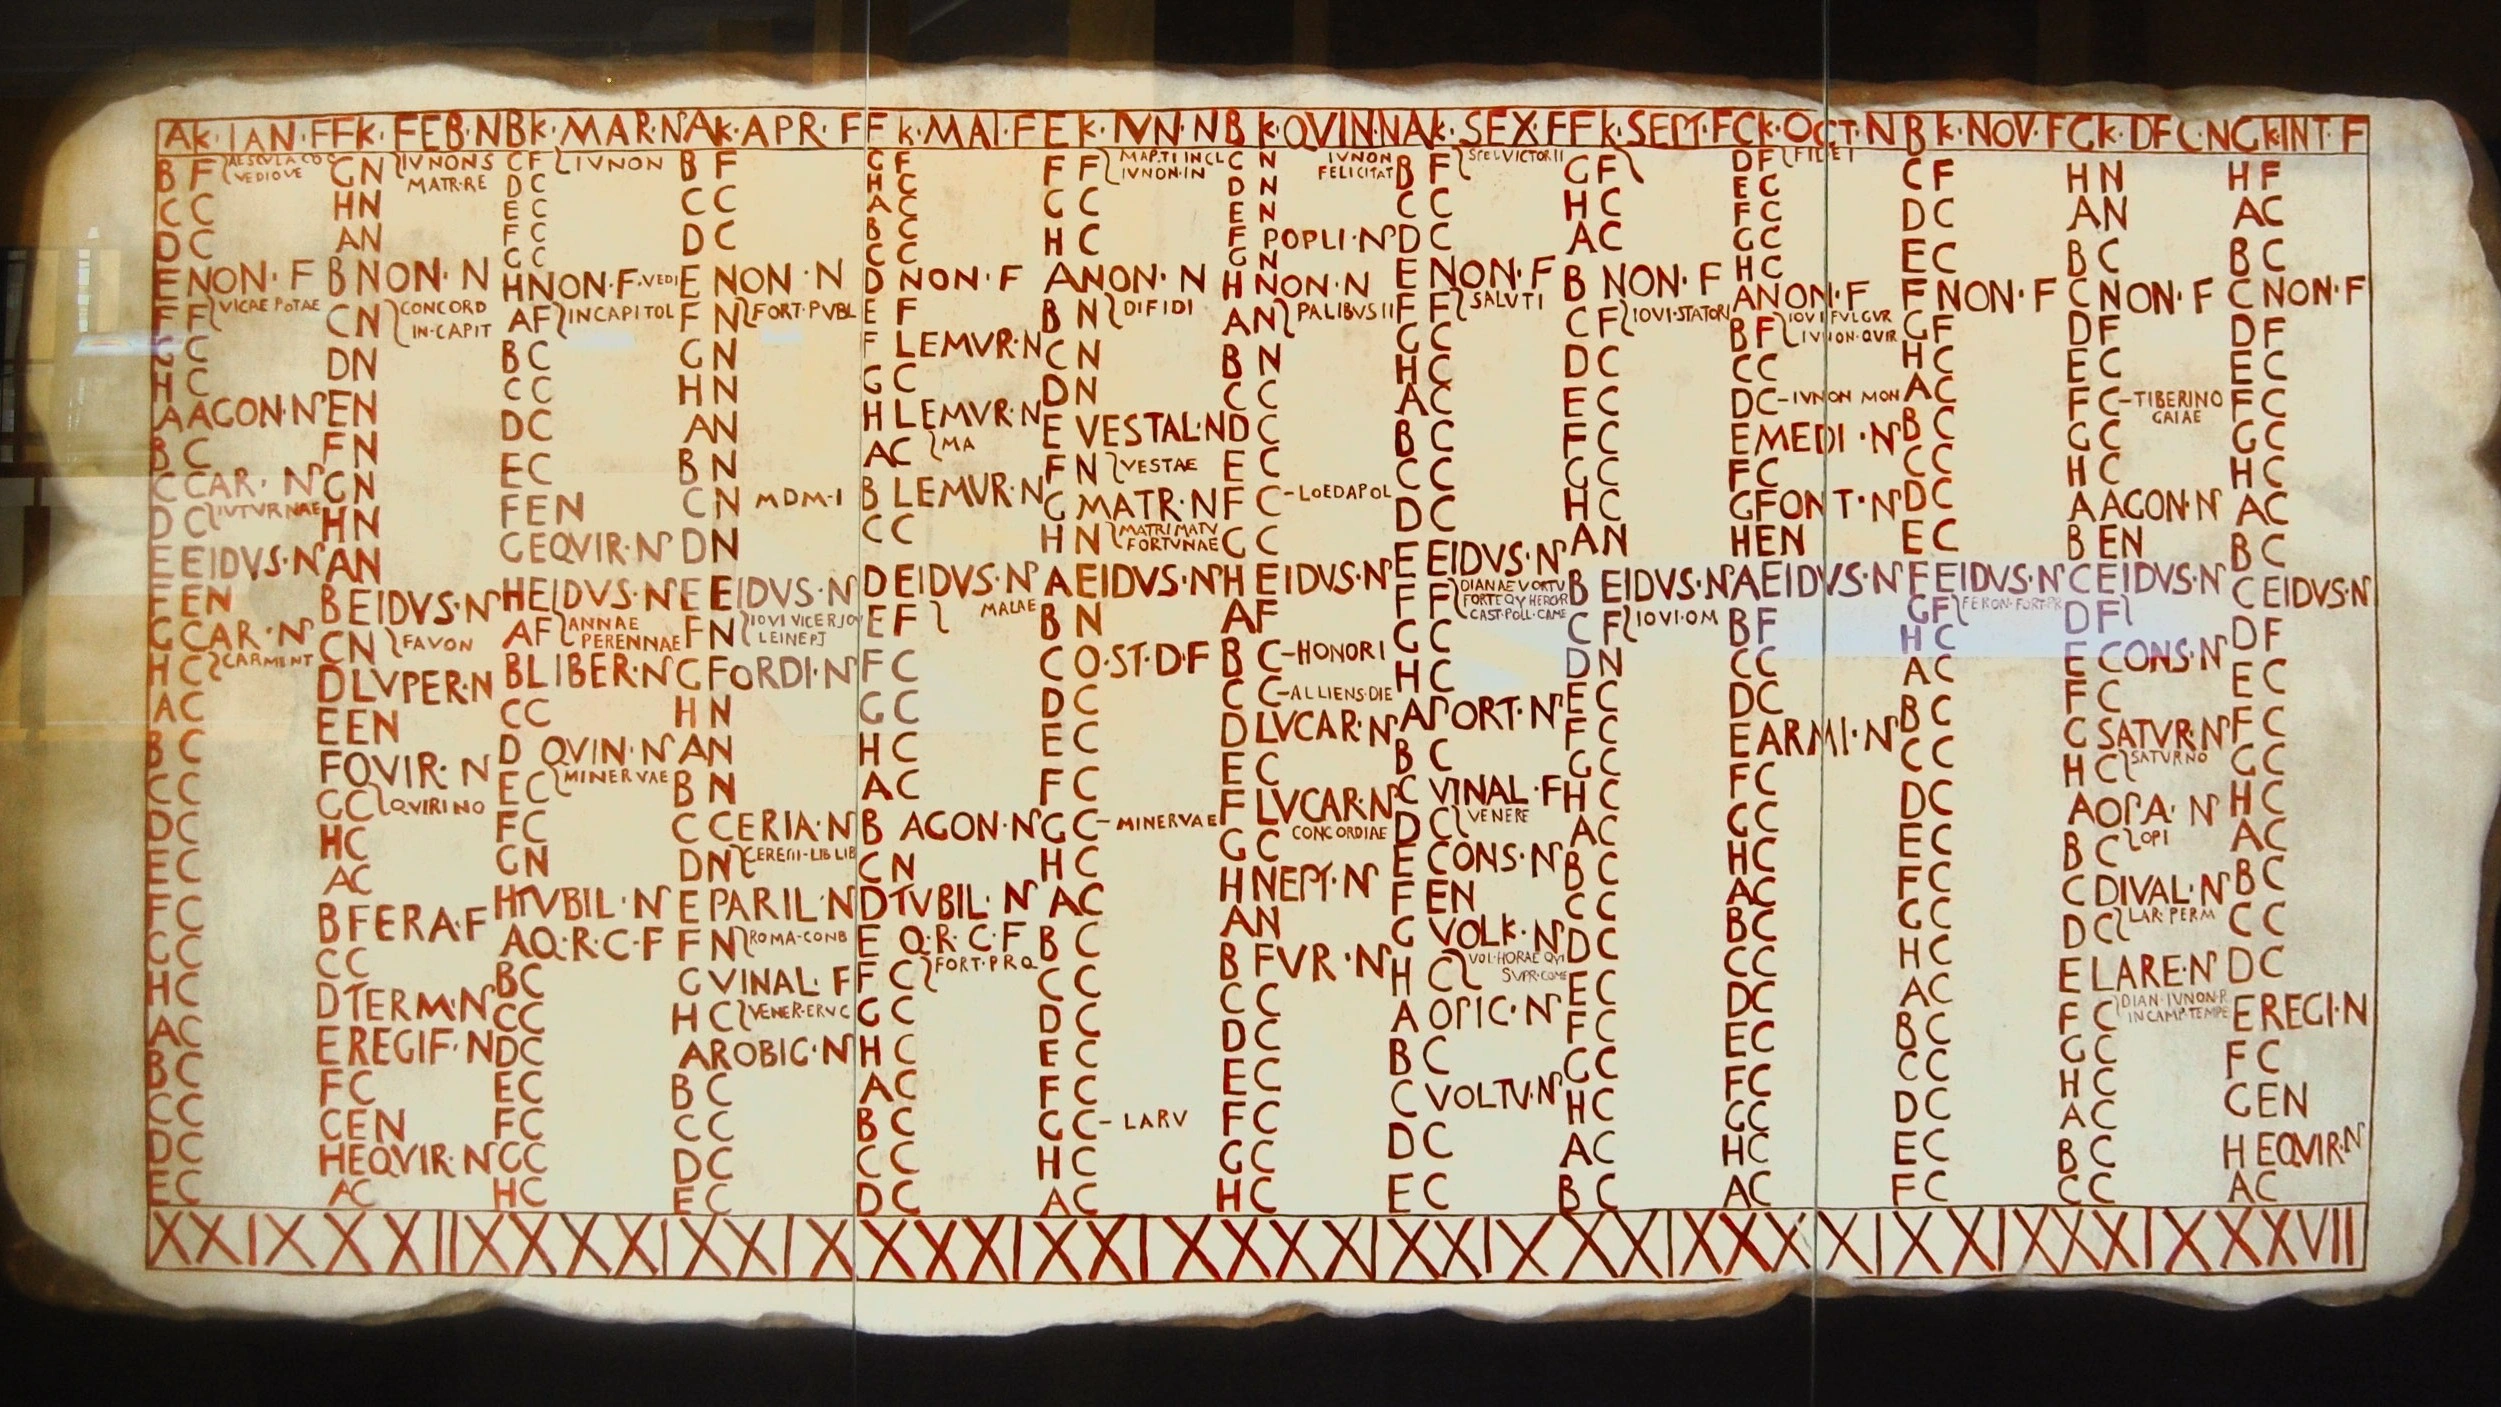 AK·IAN·F
B F AESCVLA CO
VEDIOVE
C C
D C
E NON·F
F F VICAE POTAE
G C
H C
A AGON·N
B C
C CAR·N
D C IVTVRNAE
E EIDVS·N
F EN
G CAR·N
H C CARMENT
A C
B C
C C
D C
E C
F C
G C
H C
A C
B C
C C
D C
E C
XXIX
FK·FEB·N
G N IVNONS
MATR·RE
H N
A N
B NON·N
C N CONCORD
IN·CAPIT
D N
E N
F N
G N
H N
A N
B EIDVS·N
C N FAVON
D LVPER·N
E EN
F QVIR·N
G C QVIRINO
H C
A C
B FERA·F
C C
D TERM·N
E REGIF·N
F C
G EN
H EQVIR·N
A C
XXIIX
BK·MAR·N
C F IVNON
D C
E C
F C
G C
H NON·F·VEDI
A F IN CAPITOL
B C
C C
D C
E C
F EN
G EQVIR·N
H EIDVS·N
A F ANNAE
PERENNAE
B LIBER·N
C C
D QVIN·N
E C MINERVAE
F C
G N
H TVBIL·N
A Q·R·C·F
B C
C C
D C
E C
F C
G C
H C
XXXI
AK·APR·F
B F
C C
D C
E NON·N
F N FORT·PVBL
G N
H N
A N
B N
C N MDM·I
D N
E EIDVS·N
F N IOVI VICE
LEINEPI
G FORDI·N
H N
A N
B N
C CERIA·N
D N CERERI-LIB LIB
E PARIL·N
F N ROMA-COND
G VINAL·F
H C VENER·ERVC
A ROBIG·N
B C
C C
D C
E C
XXIX
FK·MAI·F
G F
H C
A C
B C
C C
D NON·F
E F
F LEMVR·N
G C
H LEMVR·N
A C MA
B LEMVR·N
C C
D EIDVS·N
E F MALAE
F C
G C
H C
A C
B AGON·N
C N
D TVBIL·N
E Q·R·C·F
F C FORT·PRQ
G C
H C
A C
B C
C C
D C
XXXI
EK·IVN·N
F F MAP·TI IN CL
IVNON·IN
G C
H C
A NON·N
B N DIFIDI
C N
D N
E VESTAL·N
F N VESTAE
G MATR·N
H N MATRI MATV
FORTVNAE
A EIDVS·N
B N
C Q·ST·D·F
D C
E C
F C
G C-MINERVAE
H C
A C
B C
C C
D C
E C
F C
G C-LARV
H C
A C
XXIX
BK·QVIN·N
C N IVNON
FELICITAT
D N
E N
F POPLI·N
G N
H NON·N
A N PALIBVS II
B N
C C
D C
E C
F C-LOEDAPOL
G C
H EIDVS·N
A F
B C-HONORI
C C-ALLIENS·DIE
D LVCAR·N
E C
F LVCAR·N
G C CONCORDIAE
H NEPT·N
A N
B FVR·N
C C
D C
E C
F C
G C
H C
XXXI
AK·SEX·F
B F SPEI VICTOR II
C C
D C
E NON·F
F F SALVTI
G C
H C
A C
B C
C C
D C
E EIDVS·N
F F DIANAE VORTV
FORTEQV HERCR
CAST·POLL·CAME
G C
H C
A PORT·N
B C
C VINAL·F
D C VENERE
E CONS·N
F EN
G VOLK·N
H C VOL·HORAE QVI
SVPR·COME
A OPIC·N
B C
C VOLTV·N
D C
E C
XXIX
FK·SEPT·F
G F
H C
A C
B NON·F
C F IOVI·STATORI
D C
E C
F C
G C
H C
A N
B EIDVS·N
C F IOVI·OM
D N
E C
F C
G C
H C
A C
B C
C C
D C
E C
F C
G C
H C
A C
B C
XXIX
CK·OCT·N
D F FIDEI
E C
F C
G C
H C
A NON·F
B F IOVI FVLGVR
IVNON·QVIR
C C
D C-IVNON MON
E MEDI·N
F C
G FONT·N
H EN
A EIDVS·N
B F
C C
D C
E ARMI·N
F C
G C
H C
A C
B C
C C
D C
E C
F C
G C
H C
A C
XXXI
BK·NOV·F
C F
D C
E C
F NON·F
G F
H C
A C
B C
C C
D C
E C
F EIDVS·N
G F FERON·FORT·PR
H C
A C
B C
C C
D C
E C
F C
G C
H C
A C
B C
C C
D C
E C
F C
XXIX
GK·DEC·N
H N
A N
B C
C NON·F
D F
E C
F C-TIBERINO
GAIAE
G C
H C
A AGON·N
B EN
C EIDVS·N
D F
E CONS·N
F C
G SATVR·N
H C SATVRNO
A OPA·N
B C OPI
C DIVAL·N
D C LAR·PERM
E LARE·N
F C DIAN·IVNON·R
IN CAMP·TEMPE
G C
H C
A C
B C
C C
XXIX
GK·INT·F
H F
A C
B C
C NON·F
D F
E C
F C
G C
H C
A C
B C
C EIDVS·N
D F
E C
F C
G C
H C
A C
B C
C C
D C
E REGI·N
F C
G EN
H EQVIR·N
A C
XXVII